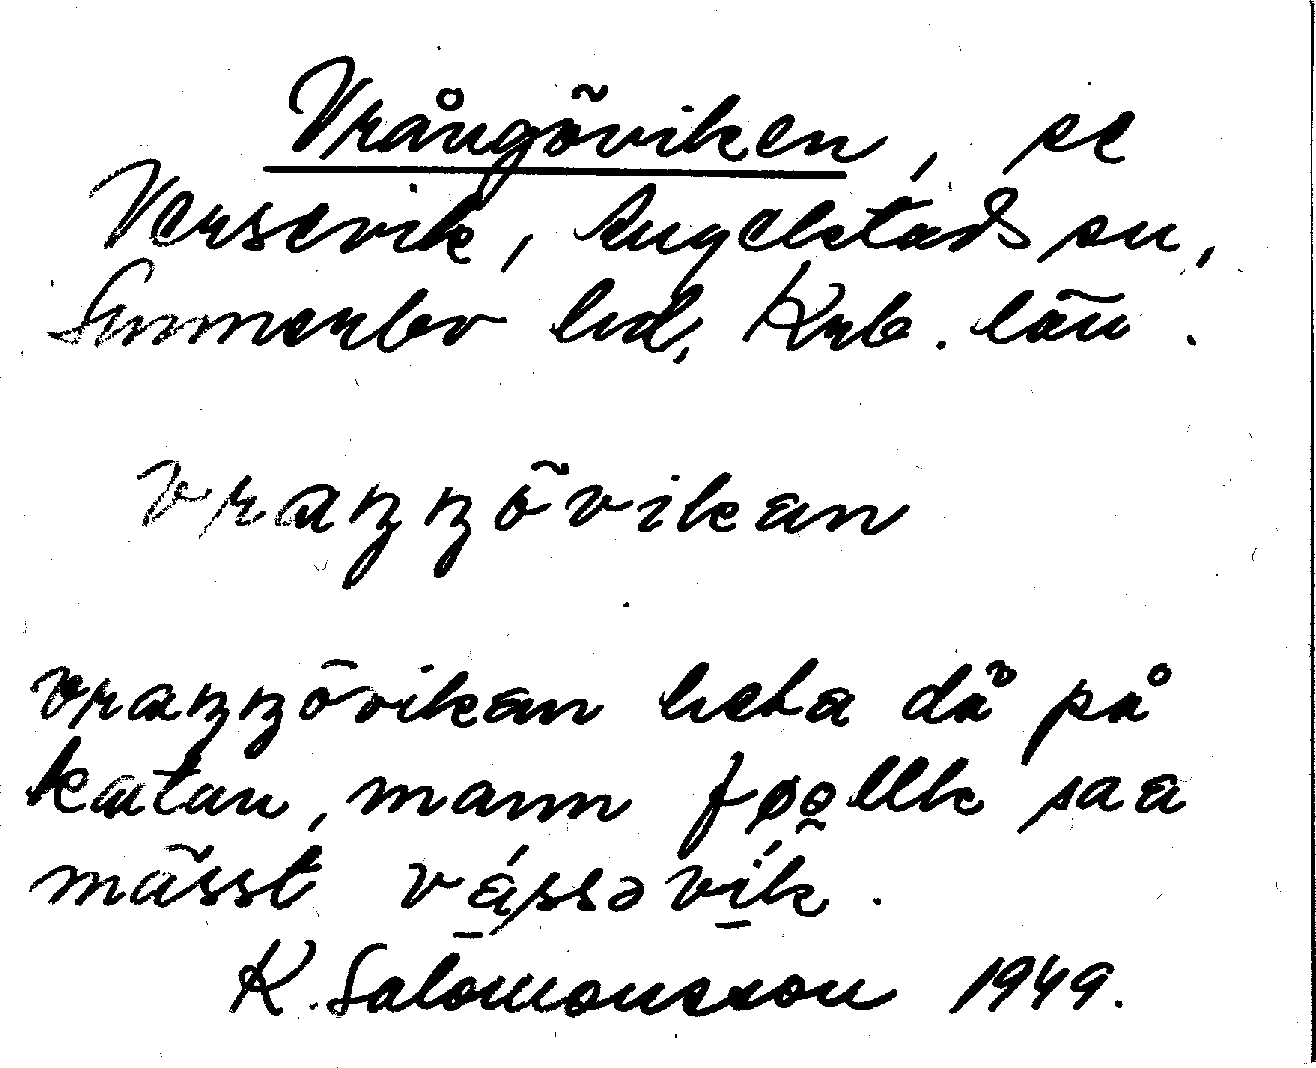 Vrångöviken, se
Versevik, Angelstads sn,
Sunnerbo hd, Krb. län.
vraŋŋövikan
vraŋŋövikan heta då på
katan, mann føølk saa
mässt vássəvík.
K. Salomonsson 1949.